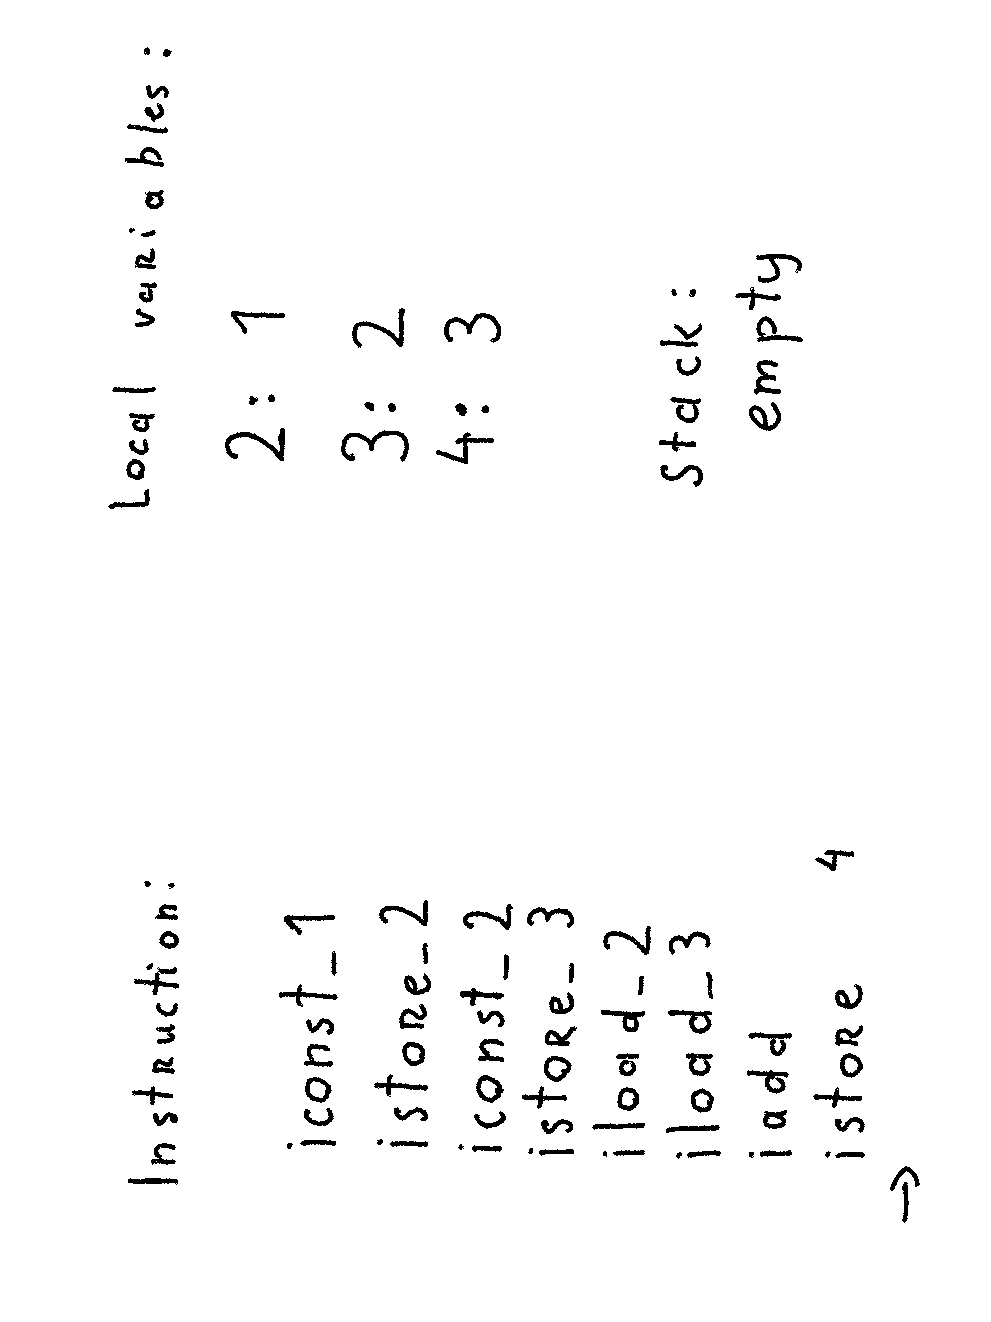 Instruction:
iconst_1
istore_2
iconst_2
istore_3
iload_2
iload_3
iadd
istore 4
→
Local variables:
2: 1
3: 2
4: 3
Stack:
empty